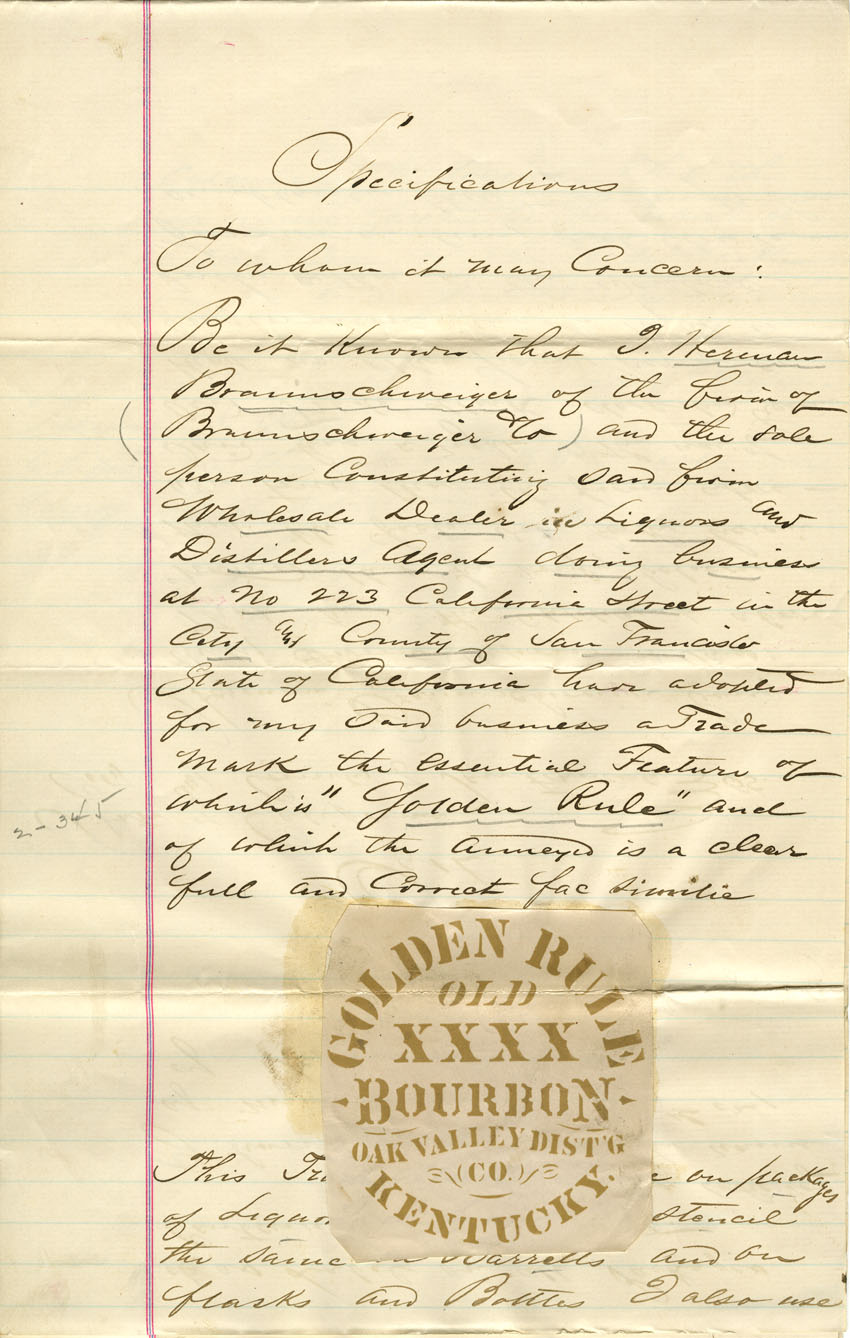 Specifications
To whom it may Concern:
Be it Known that I. Herman
Braunschweiger of the firm of
Braunschweiger & Co) and the sole
person Constituting said firm
Wholesale Dealer in Liquors and
Distillers Agent doing business
at No 223 California Street in the
City and County of San Francisco
State of California have adopted
for my said business a Trade
Mark the essential Feature of
which is "Golden Rule" and
2-345
of which the annexed is a clear
full and Correct fac similie
GOLDEN RULE
OLD
XXXX
BOURBON
OAK VALLEY DIST'G
(CO.)
KENTUCKY.
This on packages
of stencil
the same Barrells and on
flasks and Bottles I also use